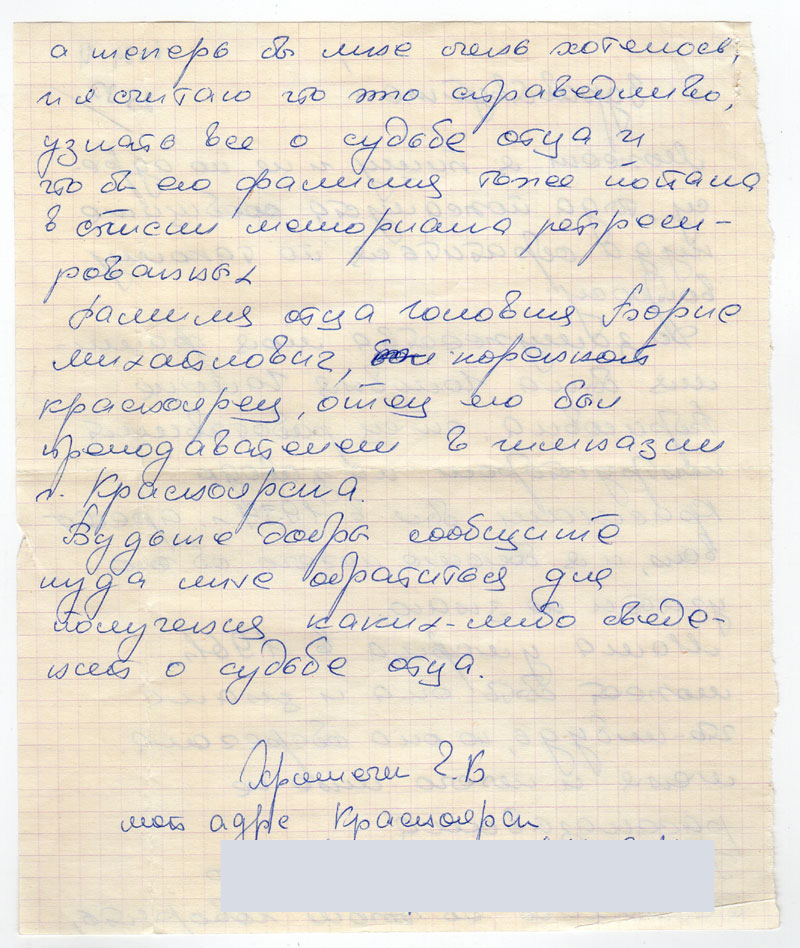 а теперь бы мне очень хотелось,
и я считаю что это справедливо,
узнать все о судьбе отца и
что бы его фамилия тоже попала
в списки мемориала репресси-
рованных
Фамилия отца Головня Борис
Михайлович, коренной
красноярец, отец его был
преподавателем в гимназии
г. Красноярска.
Будьте добры сообщите
куда мне обратиться для
получения каких-либо сведе-
ний о судьбе отца.
Г.Б
мой адре Красноярск